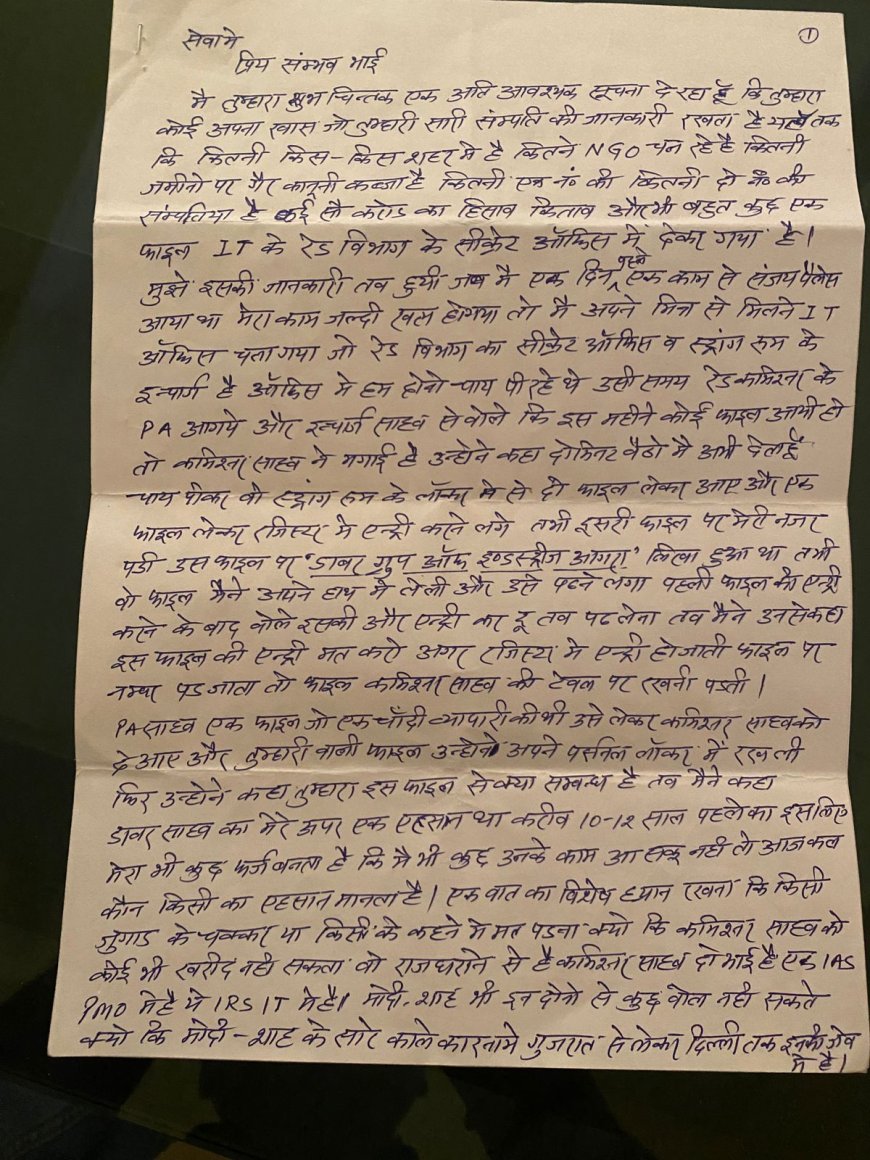 ①
सेवामे
प्रिय संम्भव भाई
मै तुम्हारा शुभ चिन्तक एक अति आवश्यक सूचना दे रहा हूँ कि तुम्हारा
कोई अपना खास जो तुम्हारी सारी संम्पति की जानकारी रखता है यहाँ तक
कि कितनी किस-किस शहर मे है कितने NGO चल रहे है कितनी
जमीनो पर गैर कानूनी कब्जा है कितनी एक नं० की कितनी दो नं० की
संम्पतिया है कई सौ करोड का हिसाब किताब और भी बहुत कुछ एक
फाइल IT के रेड विभाग के सीक्रेट ऑफिस में देकर गया है।
मुझे इसकी जानकारी तब हुयी जब मै एक दिन पहले एक काम से संजय पैलेस
आया था मेरा काम जल्दी खत्म होगया तो मै अपने मित्र से मिलने IT
ऑफिस चला गया जो रेड विभाग का सीक्रेट ऑफिस व स्ट्रांग रूम के
इन्चार्ज है ऑफिस मे हम दोनो चाय पी रहे थे उसी समय रेड कमिश्नर के
PA आगये और इन्चार्ज साहब से बोले कि इस महीने कोई फाइल आयी हो
तो कमिश्नर साहब ने मगाई है उन्होने कहा दो मिनट बैठो मै अभी देता हूँ
चाय पीकर वो स्ट्रांग रूम के लॉकर मे से दो फाइल लेकर आए और एक
फाइल लेकर रजिस्टर मे एन्ट्री करने लगे तभी दूसरी फाइल पर मेरी नजर
पडी उस फाइल पर "डावर ग्रुप ऑफ इण्डस्ट्रीज आगरा" लिखा हुआ था तभी
वो फाइल मैने अपने हाथ मे लेली और उसे पढने लगा पहली फाइल की एन्ट्री
करने के बाद बोले इसकी और एन्ट्री कर दू तब पढ लेना तब मैने उनसे कहा
इस फाइल की एन्ट्री मत करो अगर रजिस्टर मे एन्ट्री हो जाती फाइल पर
नम्बर पड जाता तो फाइल कमिश्नर साहब की टेबल पर रखनी पडती।
PA साहब एक फाइल जो एक चाँदी व्यापारी की थी उसे लेकर कमिश्नर साहब को
दे आए और तुम्हारी वाली फाइल उन्होने अपने पर्सनल लॉकर में रख ली
फिर उन्होने कहा तुम्हारा इस फाइल से क्या सम्बन्ध है तब मैने कहा
डावर साहब का मेरे ऊपर एक एहसान था करीब 10-12 साल पहले का इसलिए
मेरा भी कुछ फर्ज बनता है कि मै भी कुछ उनके काम आ सकू नही तो आज कल
कौन किसी का एहसान मानता है। एक बात का विशेष ध्यान रखना कि किसी
जुगाड के चक्कर या किसी के कहने मे मत पडना क्यो कि कमिश्नर साहब को
कोई भी खरीद नही सकता वो राजघराने से है कमिश्नर साहब दो भाई है एक IAS
PMO मे है ये IRS IT मे है। मोदी-शाह भी इन दोनो से कुछ बोल नही सकते
क्यो कि मोदी-शाह के सारे काले कारनामे गुजरात से लेकर दिल्ली तक इनकी जेब
मे है।